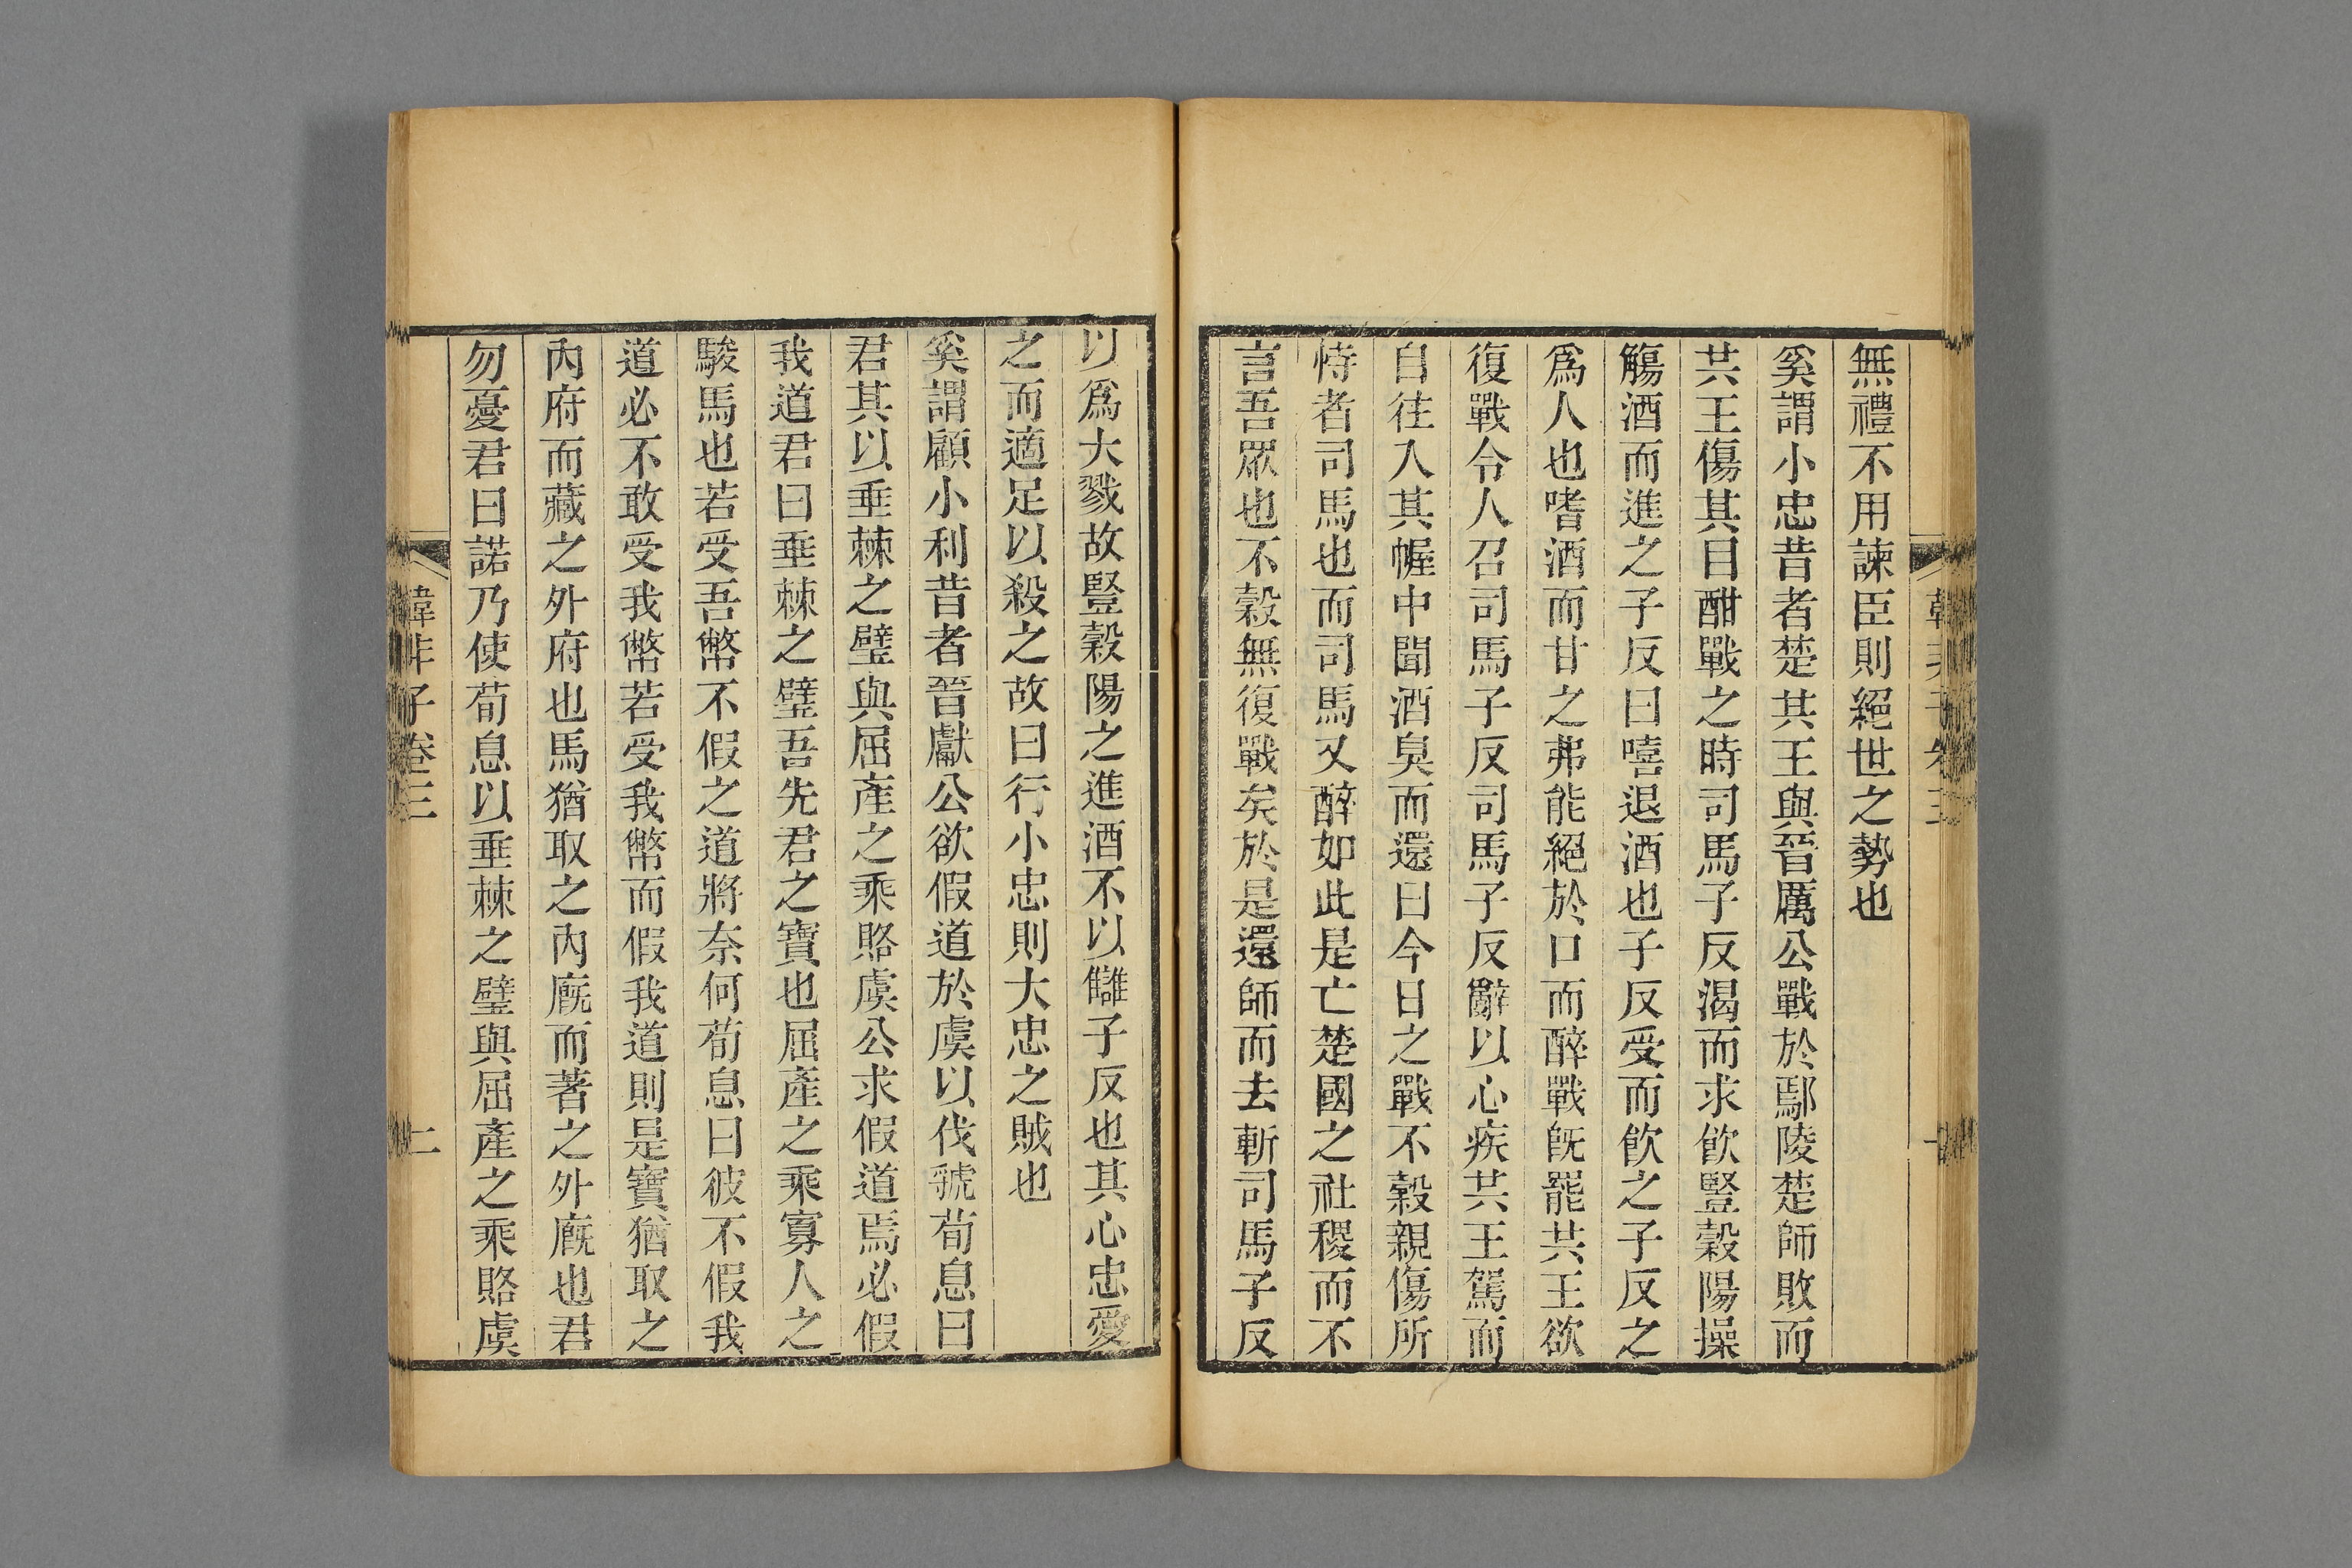 無禮不用諫臣則絕世之勢也
奚謂小忠昔者楚共王與晉厲公戰於鄢陵楚師敗而
共王傷其目酣戰之時司馬子反渴而求飮豎穀陽操
觴酒而進之子反曰嘻退酒也子反受而飮之子反之
爲人也嗜酒而甘之弗能絕於口而醉戰旣罷共王欲
復戰令人召司馬子反司馬子反辭以心疾共王駕而
自往入其幄中聞酒臭而還曰今日之戰不穀親傷所
恃者司馬也而司馬又醉如此是亡楚國之社稷而不
言吾眾也不穀無復戰矣於是還師而去斬司馬子反
以爲大戮故豎穀陽之進酒不以讎子反也其心忠愛
之而適足以殺之故曰行小忠則大忠之賊也
奚謂顧小利昔者晉獻公欲假道於虞以伐虢荀息曰
君其以垂棘之璧與屈產之乘賂虞公求假道焉必假
我道君曰垂棘之璧吾先君之寶也屈產之乘寡人之
駿馬也若受吾幣不假之道將奈何荀息曰彼不假我
道必不敢受我幣若受我幣而假我道則是寶猶取之
內府而藏之外府也馬猶取之內廐而著之外廐也君
勿憂君曰諾乃使荀息以垂棘之璧與屈產之乘賂虞
韓非子卷三
二